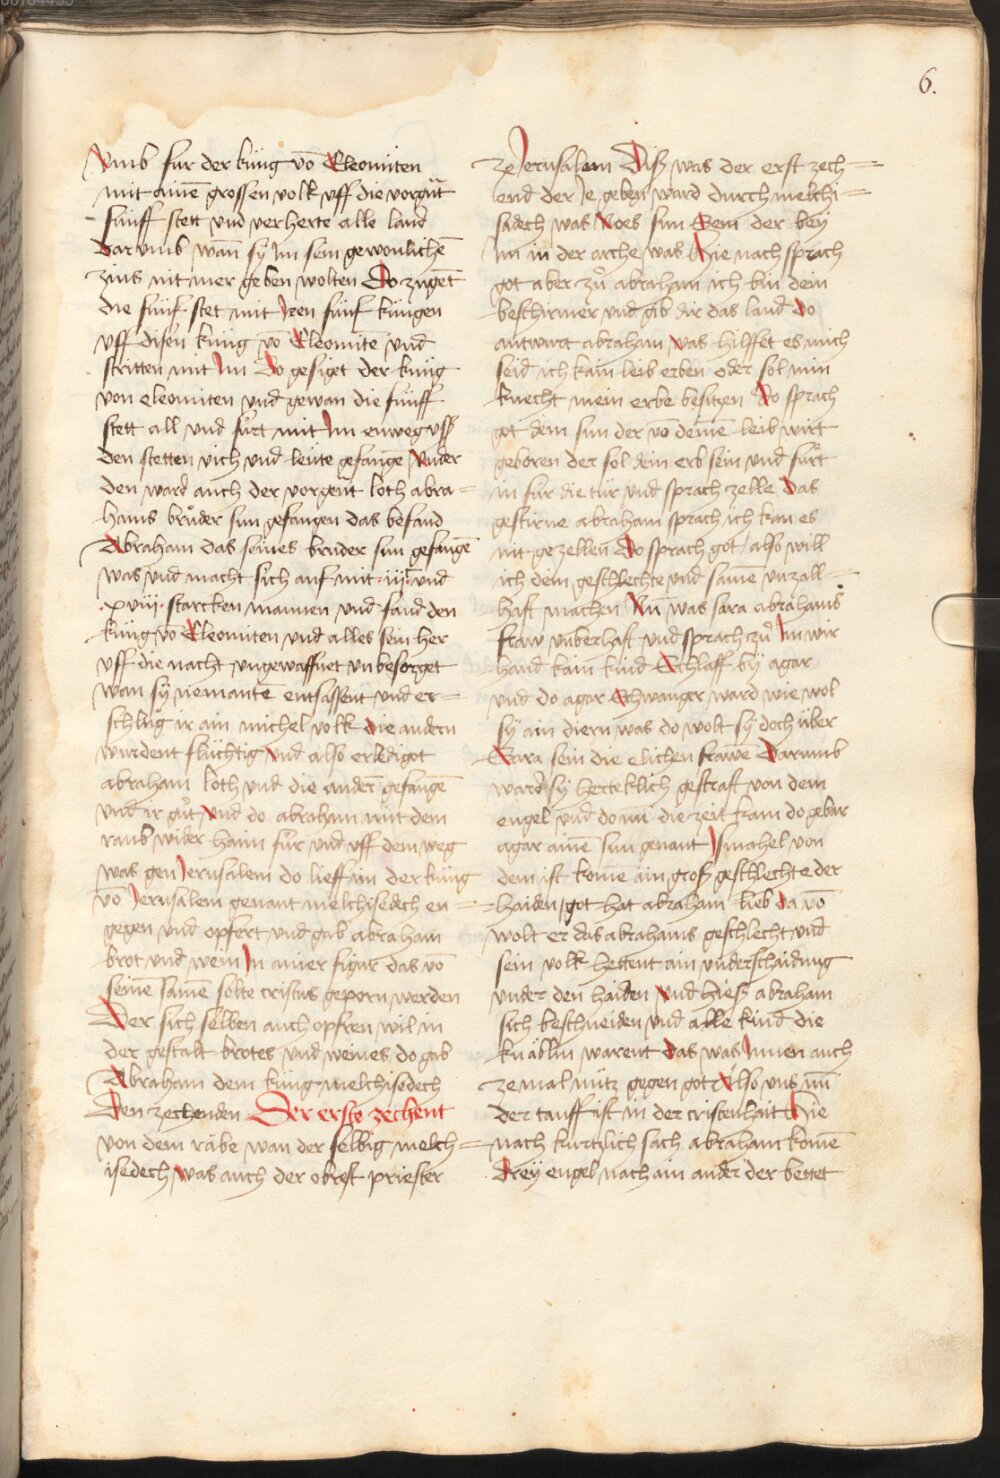 6.
Vmb fur der küng vō Eleomiten
mit ainē grossen volk vff die vorgnt̄
fünff stett vnd verherte alle land
dar vmb wan̄ sy Im sein gewonlichē
zins nit mer geben wolten Do zugēt
die fünf stet mit Iren fünf küngen
vff disen küng vō Eleomitē vnd
stritten mit Im Do gesiget der küng
von eleomiten vnd gewan die fünff
stett all vnd fůrt mit Im enweg vsß
den stetten vich vnd leüte gefangē Vnder
den ward auch der vorgent loth abra=
hams brůder sun gefangen das befand
Abraham das seines bruder sun gefangē
was vnd macht sich auf mit iijc vnd
xviij starcken mannen vnd fand den
küng vō Eleomiten vnd alles sein her
vff die nacht vngewaffnet vnbesorget
wan sy niemantē entsassent vnd er=
schlug ir ain michel volk die andern
wurdent flüchtig vnd also erledigot
abraham loth vnd die anderē gefangē
vnd ir gůt Vnd do abraham mit dem
raub wider haim fůr vnd vff dem weg
was gen Jerusalem do lieff im der küng
vō Jerusalem genant melchisedech en=
gegen vnd opfert vnd gab abraham
brot vnd wein In ainer figur das vō
seinē samē solte cristus geporn werden
Der sich selben auch opfren wil in
der gestalt brotes vnd weines do gab
Abraham dem küng melchisedech
Den zechenden Der erste zechent
von dem rabe wan der selbig melch=
isedech was auch der obrest priester
ze Jerusalem Disß was der erst zech=
lend der Ie geben ward durch melchi=
sadech was Noes sun Sem der bey
Im in der arche was Hie nach sprach
got aber zů abraham ich bin dein
beschirmer vnd gib dir das land Do
antwurt abraham was hilffet es mich
seid ich kain leib erben oder sol min
knecht mein erbe besitzen Do sprach
got dem sun der vō deinē leib wirt
geboren der sol dein erb sein vnd fůrt
in fur die tür vnd sprach zelle Das
gestirne abraham sprach ich kan es
nit gezellen Do sprach got also will
ich dein geschlechte vnd samē vnzall=
haft machen Nū was sara abrahams
fraw vnberhaft vnd sprach zů Im wir
hand kain kind Schlaff by agar
vnd do agar Schwanger ward wie wol
sy ain diern was do wolt sy doch über
Sara sein die elichen frawē Darumb
ward sy herteklich gestraft von dem
engel vnd do nū die zeit kam do gebar
agar ainē sun genant Ismahel von
dem ist komē ain groß geschlechte der
haiden got hat abraham lieb Da vō
wolt er das abrahams geschlecht vnd
sein volk hettent ain vnderschaidung
vnder den haiden Vnd hieß abraham
sich beschneiden vnd alle kind die
knäblin warent Das was Innen auch
ze mal nütz gegen got Also vns nū
der tauff ist in der cristenhait Hie
nach kurtzlich sach abraham komē
Drey engel nach ain ander der bettet